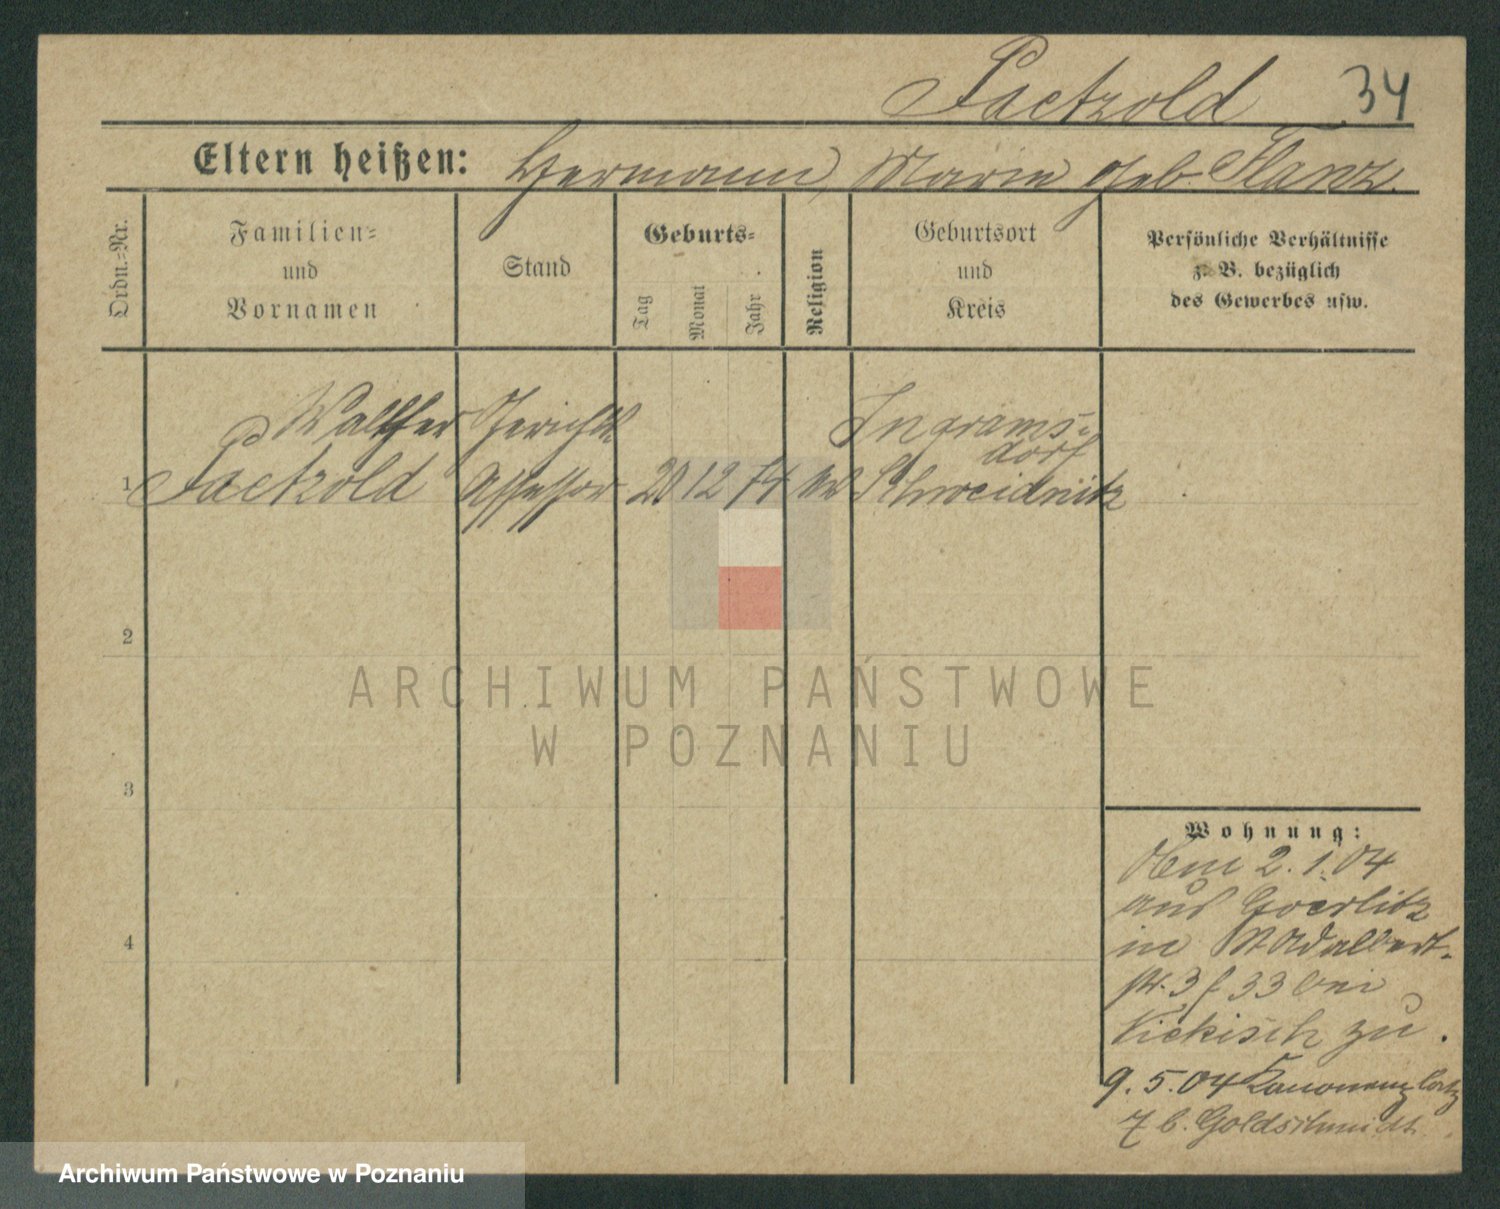 Paetzold 34
Eltern heißen: Hermann, Marie geb. Flanz.
Ordn.-Nr.
Familien-
und
Vornamen
Stand
Geburts-
Tag
Monat
Jahr
Religion
Geburtsort
und
Kreis
Persönliche Verhältnisse
z. B. bezüglich
des Gewerbes usw.
Walther Gerichts
Ingrams-
dorf
1 Paetzold Assessor 20 12 74 ev Schweidnitz
2
3
4
Wohnung:
2. 1. 04
aus Goerlitz
in St Adalbert-
str. 3 f 33 bei
Kiekisch zu.
9. 5. 04 Kanonenplatz
7 b. Goldschmidt
ARCHIWUM PAŃSTWOWE
W POZNANIU
Archiwum Państwowe w Poznaniu